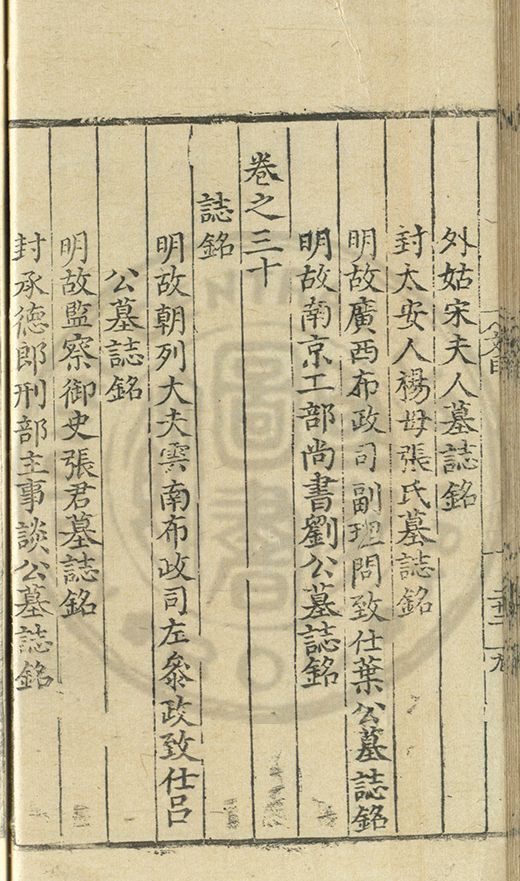 外姑宋夫人墓誌銘
封太安人楊母張氏墓誌銘
明故廣西布政司副理問致仕葉公墓誌銘
明故南京工部尚書劉公墓誌銘
卷之三十
誌銘
明故朝列大夫雲南布政司左叅政致仕吕
公墓誌銘
明故監察御史張君墓誌銘
封承德郎刑部主事談公墓誌銘